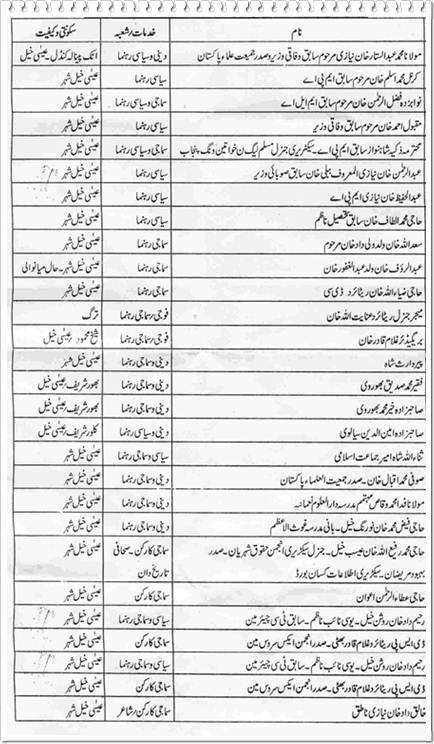 نام خدمات شعبہ سکونتی و کیفیت
مولانا محمد عبدالستار خان نیازی مرحوم سابق وفاقی وزیر و صدر جمعیت علماء پاکستان دینی و سیاسی رہنما اٹک پٹیالہ کنڈل۔ عیسیٰ خیل
کرنل محمد اسلم خان مرحوم سابق ایم پی اے سیاسی رہنما عیسیٰ خیل شہر
نوابزدہ فضل الرحمٰن خان مرحوم سابق ایم ایل اے سماجی و سیاسی رہنما عیسیٰ خیل شہر
مقبول احمد خان مرحوم سابق وفاقی وزیر سیاسی رہنما عیسیٰ خیل شہر
محترمہ ذکیہ شاہنواز سابق ایم پی اے۔ سیکٹریری جنرل مسلم لیگ ن خواتین ونگ پنجاب سماجی و سیاسی رہنما عیسیٰ خیل شہر
عبدالرحمٰن خان نیازی المعروف ببلی خان سابق صوبائی وزیر سیاسی رہنما عیسیٰ خیل شہر
عبدالحفیظ خان نیازی سابق ایم پی اے سیاسی رہنما عیسیٰ خیل شہر
حاجی محمد الطاف خان سابق تحصیل ناظم سیاسی رہنما عیسیٰ خیل شہر
سعد اللہ خان ولد ولی داد خان مرحوم سماجی رہنما عیسیٰ خیل شہر
عبدالرؤف خان ولد عبدالغفور خان سماجی رہنما عیسیٰ خیل شہر۔ حال میانوالی
حاجی ضیاء اللہ خان ریٹائرڈ ڈی سی سماجی رہنما عیسیٰ خیل شہر
میجر جنرل ریٹائرڈ عنایت اللہ خان فوجی سماجی رہنما ترگ
بریگیڈئر غلام قادر خان فوجی سماجی رہنما شیخ محمود عیسیٰ خیل
پیر وارث شاہ دینی و سماجی رہنما عیسیٰ خیل شہر
فقیر محمد صدیق بھوروی دینی و سماجی رہنما بھور شریف عیسیٰ خیل
صاحبزادہ خیر محمد بھوروی دینی و سماجی رہنما بھور شریف عیسیٰ خیل
صاحبزادہ امین الدین سیالوی دینی و سیاسی رہنما کلور شریف عیسیٰ خیل
ثناء اللہ شاہ امیر جماعت اسلامی سیاسی و سماجی رہنما عیسیٰ خیل شہر
صوفی محمد اقبال خان۔ صدر جمعیت العلماء پاکستان دینی و سماجی رہنما عیسیٰ خیل شہر
مولانا فدا محمد وقاص مہتمم مدرسہ دارالعلوم نعمانیہ دینی و سماجی رہنما عیسیٰ خیل شہر
حاجی فیض محمد خان نورنگ خیل۔ بانی مدرسہ غوث الاعظم دینی و سماجی رہنما عیسیٰ خیل شہر
حاجی محمد رفیع اللہ خان عیب خیل۔ جنرل سیکریری انجمن حقوق شہریان۔ صدر سماجی کارکن۔ صحافی عیسیٰ خیل شہر
بہبود مریضان۔ سیکریری اطلاعات کسان بورڈ تاریخ دان
حاجی عطاء الرحمٰن اعوان سماجی کارکن عیسیٰ خیل شہر
رحیم داد خان روشن خیل۔ یوسی نائب ناظم۔ سابق ٹی سی چیئرمین سیاسی و سماجی رہنما عیسیٰ خیل شہر
ڈی ایس پی ریٹائرڈ غلام قادر بھٹی۔ صدر انجمن ایکس سروس مین سماجی کارکن عیسیٰ خیل شہر
رحیم داد خان روشن خیل۔ یوسی نائب ناظم۔ سابق ٹی سی چیئرمین سیاسی و سماجی رہنما عیسیٰ خیل شہر
ڈی ایس پی ریٹائرڈ غلام قادر بھٹی۔ صدر انجمن ایکس سروس مین سماجی کارکن عیسیٰ خیل شہر
خالق داد خان نیازی ناطق سماجی کارکن شاعر عیسیٰ خیل شہر